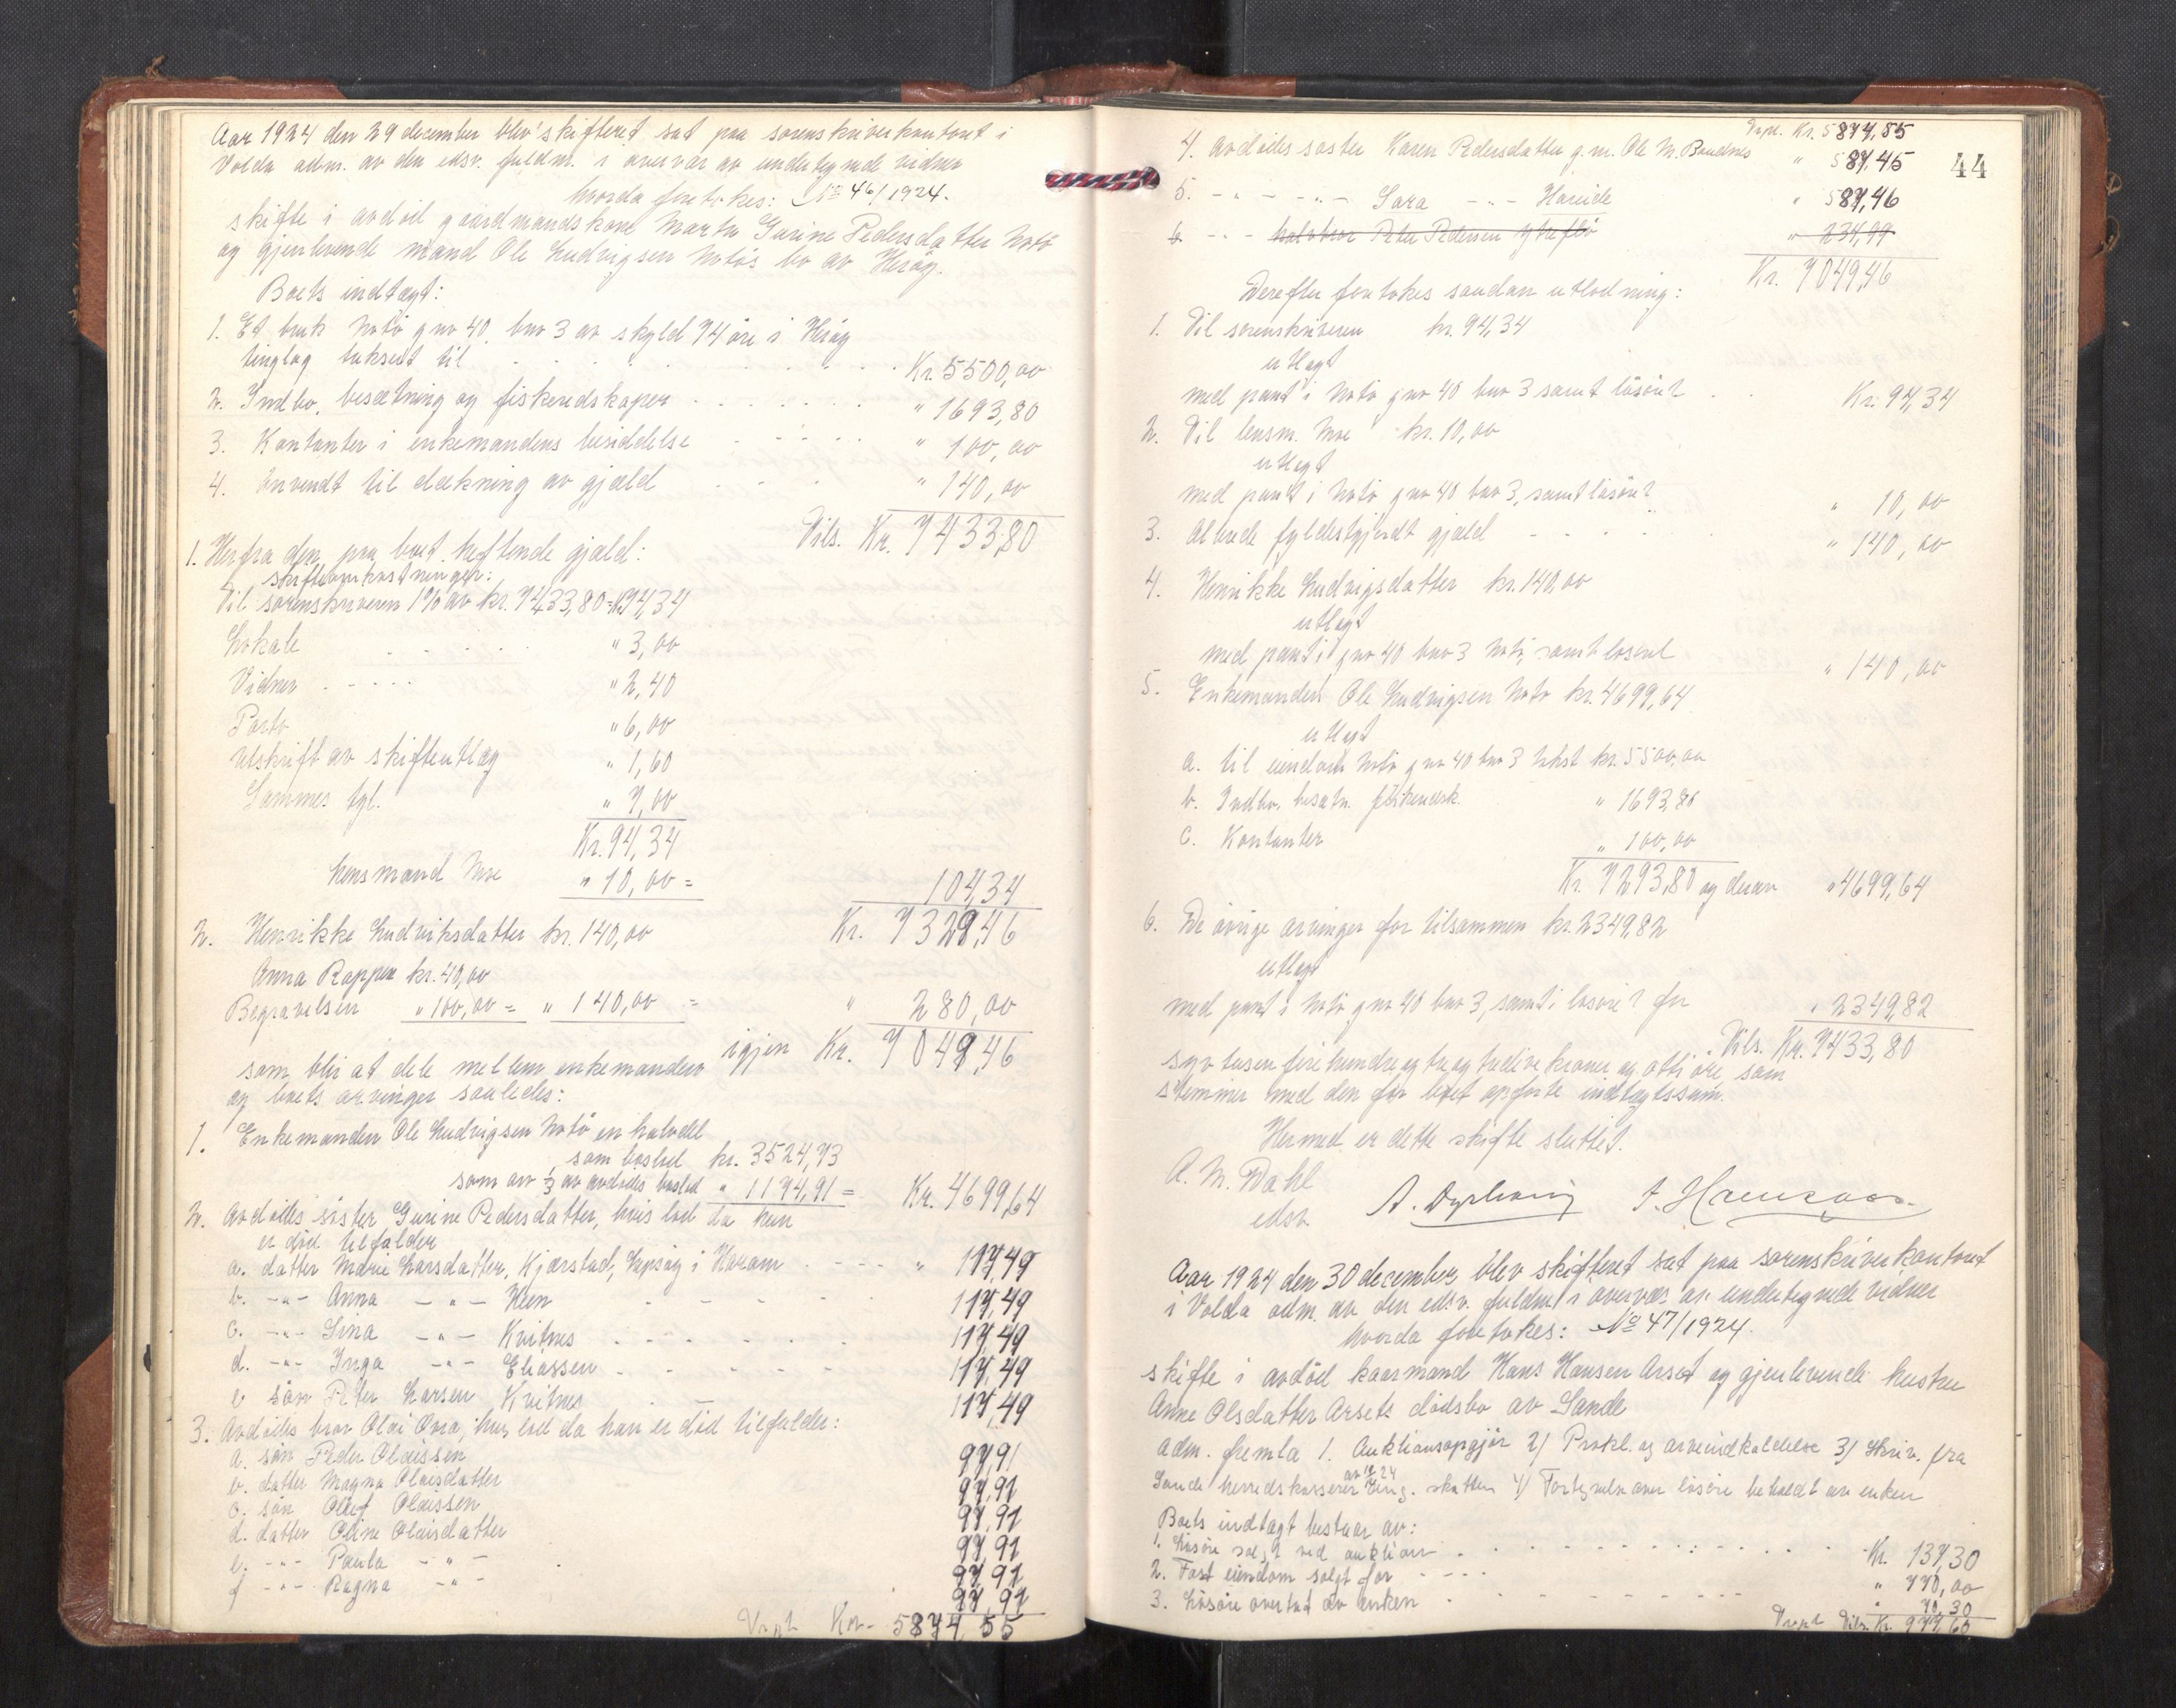 Aar 1924 den 29 december blev skifteret sat paa sorenskriverkontoret i
Volda adm. av den edsv. fuldm. i overvær av undertegnede vidner
hvorda foretokes: No 46/1924.
skifte i avdöd gaardmandskone Marta Gurine Pedersdatter Notö
og gjenlevende mand Ole Ludvigsen Notös bo av Heröy.
Boets indtægt:
1. Et bruk Notö gno 40, bno 3 av skyld 74 öre i Heröy
tinglag taksert til . . . . . . . Kr. 5500,00
2. Indbo, besætning og fiskeredskaper . . . . . " 1693,80
3. Kontanter i enkemandens besiddelse . . . . " 100,00
4. Anvendt til dækning av gjæld . . . " 140,00
Tils. Kr. 7433,80
1. Herfra den paa boet heftende gjæld:
skifteomkostninger:
Til sorenskriveren 1% av kr. 7433,80 = kr. 74,34
Lokale . . . . " 3,00
Vidner . . . . " 2,40
Porto " 6,00
Utskrift av skifteutlæg " 1,60
Sammes tgl. " 7,00
Kr. 94,34
Lensmand Moe " 10,00 = 104,34
Kr. 7329,46
2. Henrikke Ludviksdatter kr. 140,00
Anna Roppen kr. 40,00
Begravelsen " 100,00 = " 140,00 = " 280,00
igjen Kr. 7049,46
som blir at dele mellem enkemanden
og boets arvinger saaledes:
1. Enkemanden Ole Ludvigsen Notö en halvdel
som boslod kr. 3524,73
som arv 1/3 av avdödes boslod " 1174,91 = Kr. 4699,64
2. Avdödes söster Gurine Pedersdatter, hvis lod da hun
er död tilfalder
a. datter Marie Larsdatter, Kjærstad, Lepsöy i Haram . . . . " 117,49
b. -"- Anna -"- Hen . . . . . 117,49
c. -"- Sina -"- Kvitnes . . . . . 117,49
d. -"- Inga -"- Eliassen . . . . . 117,49
e sön Peter Larsen Kvitnes . . . 117,49
3. Avdödes bror Olai Oma, hvis lod da han er död tilfalder:
a. sön Peder Olaissen 97,91
b. datter Magna Olaisdatter 97,91
c. sön Oluf Olaissen 97,91
d. datter Oline Olaisdatter 97,91
e. -"- Paula -"- 97,91
f -"- Ragna -"- 97,91
Trpt Kr. 5874,55
44
Trpt. Kr. 5874,55
4. Avdödes söster Karen Pedersdatter g.m. Ole M. Bondnes " 587,45
5. -"- -"- Sara -"- Hareide " 587,46
6. -"- halvbror Peter Pedersen Ytreflö " 234,99
Kr. 7049,46
Derefter foretokes saadan utlodning:
1. Til sorenskriveren kr. 94,34
utlagt
med pant i Notö gno 40 bno 3 samt lösöret . . Kr. 94,34
2. Til lensm. Moe kr. 10,00
utlagt
med pant i Notö gno 40 bno 3, samt lösöret " 10,00
3. Allerede fyldestgjordt gjæld . . . . . " 140,00
4. Henrikke Ludvigsdatter kr. 140,00
utlagt
med pant i gno 40 bno 3 Notö, samt lösöret " 140,00
5. Enkemanden Ole Ludvigsen Notö kr. 4699,64
utlagt
a. til eiendom Notö gno 40 bno 3 takst kr. 5500,00
b. Indbo, besætn. fiskeredsk. " 1693,80
c. Kontanter " 100,00
Kr. 7293,80 og derav " 4699,64
6. De övrige arvinger for tilsammen kr. 2349,82
utlagt
med pant i Notö gno 40 bno 3, samt i lösöret for " 2349,82
Tils. Kr. 7433,80
syv tusen fire hundre og tre og tredive kroner og otti öre, som
stemmer med den for boet opförte indtægtssum.
Hermed er dette skifte sluttet.
A. M. Dahl
edsv.
Aar 1924 den 30 december blev skifteret sat paa sorenskriverkontoret
i Volda adm. av den edsv. fuldm. i overvær av undertegnede vidner
hvorda foretokes: No 47/1924.
skifte i avdöd kaarmand Hans Hansen Aarset og gjenlevende hustru
Anne Olsdatter Aarsets dödsbo av Sande
Adm. fremla 1. Auktionsopgjör 2) Prokl. og arveindkaldelse 3) Skriv. fra
Sande herredskasserer av 12/24 ang. skatten 4) Fortegnelse over lösöre beholdt av enken
Boets indtægt bestaar av:
1. Lösöre solgt ved auktion . . . . . . . Kr. 137,30
2. Fast eiendom solgt for . . . . " 770,00
3. Lösöre overtat av enken . . . . . " 70,30
Trpt Tils. Kr. 977,60